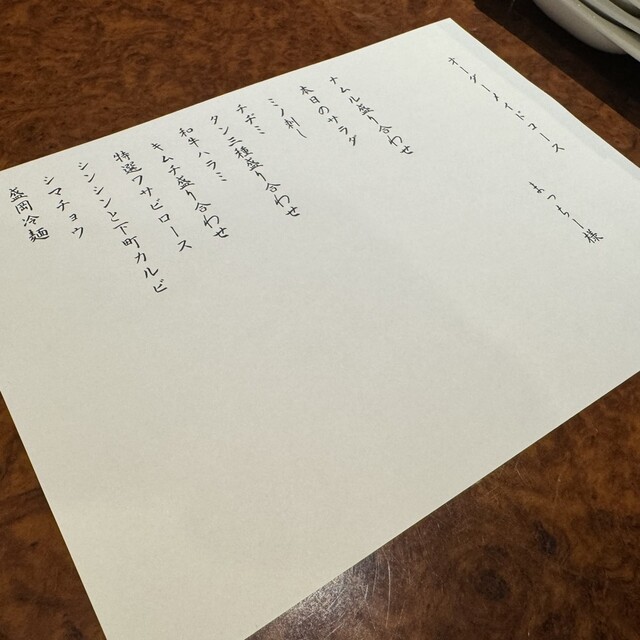 オーダーメイドコース
まっちー様
ナムル盛り合わせ
本日のサラダ
ミノ刺し
チヂミ
タン三種盛り合わせ
和牛ハラミ
キムチ盛り合わせ
特選ワサビロース
シンシンと下町カルビ
シマチョウ
盛岡冷麺